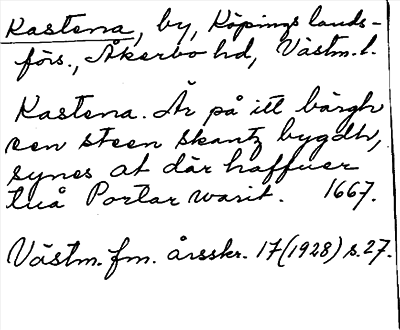 Kastena, by, Köpings lands-
förs., Åkerbo hd, Västm. l.
Kastena. Är på itt bärgh
een steen skantz bygdh,
synes at där haffuer
tuå Portar warit. 1667.
Västm. fm. årsskr. 17 (1928) s. 27.